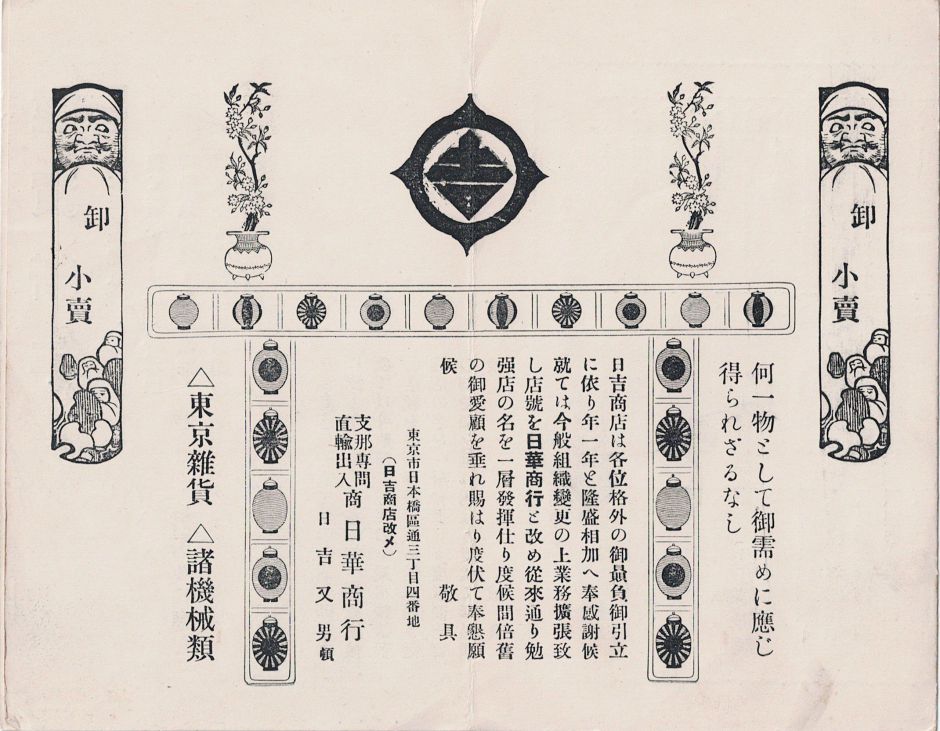 卸
小賣
何一物として御需めに應じ
得られざるなし
日吉商店は各位格外の御贔負御引立
に依り年一年と隆盛相加へ奉感謝候
就ては今般組織變更の上業務擴張致
し店號を日華商行と改め從來通り勉
强店の名を一層發揮仕り度候間倍舊
の御愛顧を垂れ賜はり度伏て奉懇願
候 敬具
東京市日本橋區通三丁目四番地
(日吉商店改メ)
支那專問
直輸出入商 日華商行
日吉又男
頓
△東京雜貨 △諸機械類
卸
小賣